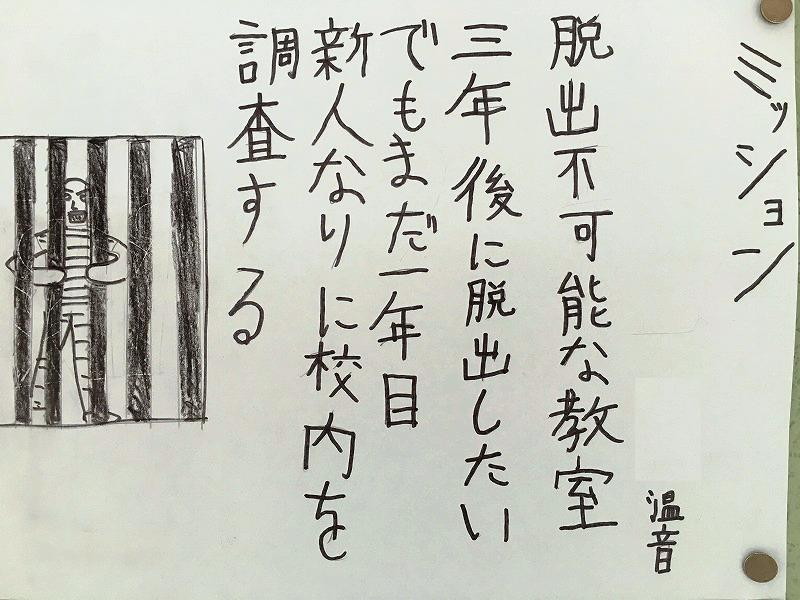 ミッション
温音
脱出不可能な教室
三年後に脱出したい
でもまだ一年目
新人なりに校内を
調査する